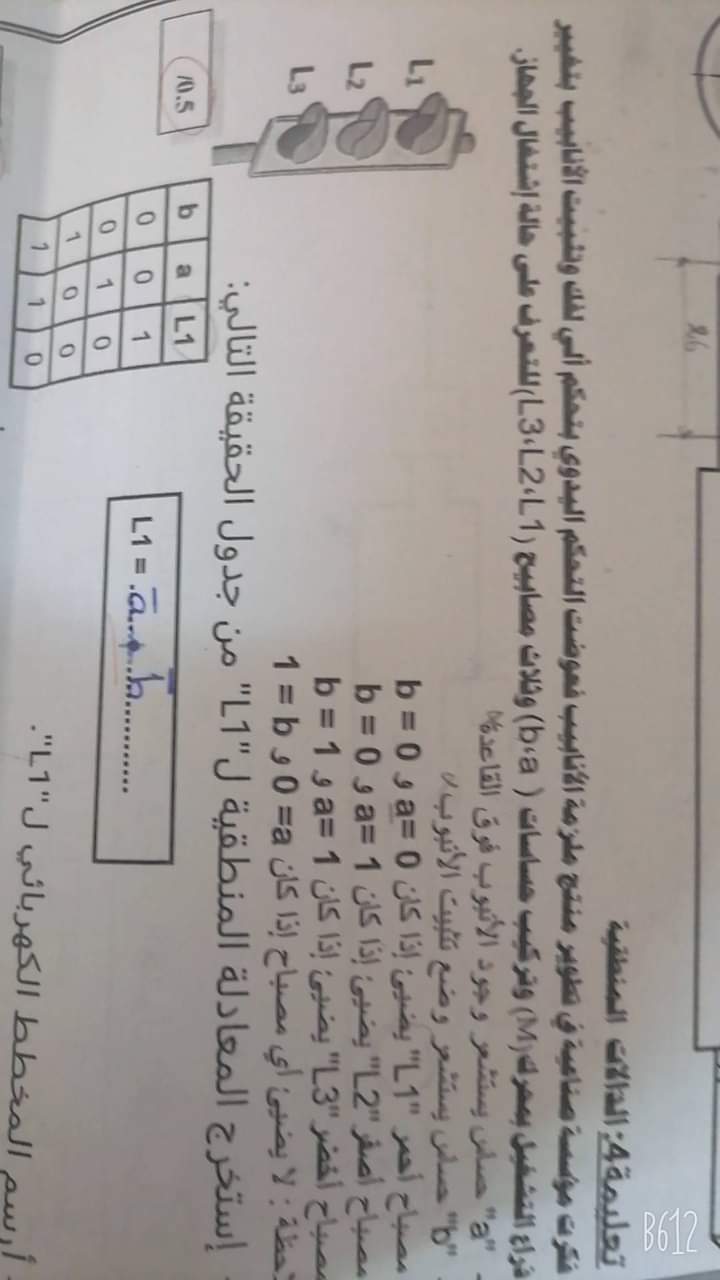 26
تعليمة 4: الدالات المنطقية
فكرت مؤسسة صناعية في تطوير منتج ملزمة الأنابيب فعوضت التحكم اليدوي بتحكم ألي لفك وتثبيت الأنابيب بتغيير
ذراع التشغيل بمحرك (M) وتركيب حساسات ( b،a) وثلاث مصابيح (L3،L2،L1) للتعرف على حالة إشتغال الجهاز.
- "a" حساس يستشعر وجود الأنبوب فوق القاعدة
- "b" حساس يستشعر وضع تثبيت الأنبوب
مصباح أحمر "L1" يضيئ إذا كان a= 0 و b = 0
مصباح أصفر "L2" يضيئ إذا كان a= 1 و b = 0
مصباح أخضر "L3" يضيئ إذا كان a= 1 و b = 1
حظة : لا يضيئ أي مصباح إذا كان a= 0 و b = 1
L1
L2
L3
إستخرج المعادلة المنطقية ل"L1" من جدول الحقيقة التالي:
/0.5
b a L1
0 0 1
0 1 0
1 0 0
1 1 0
L1 = a̅ . b̅
أرسم المخطط الكهربائي ل"L1".
B612